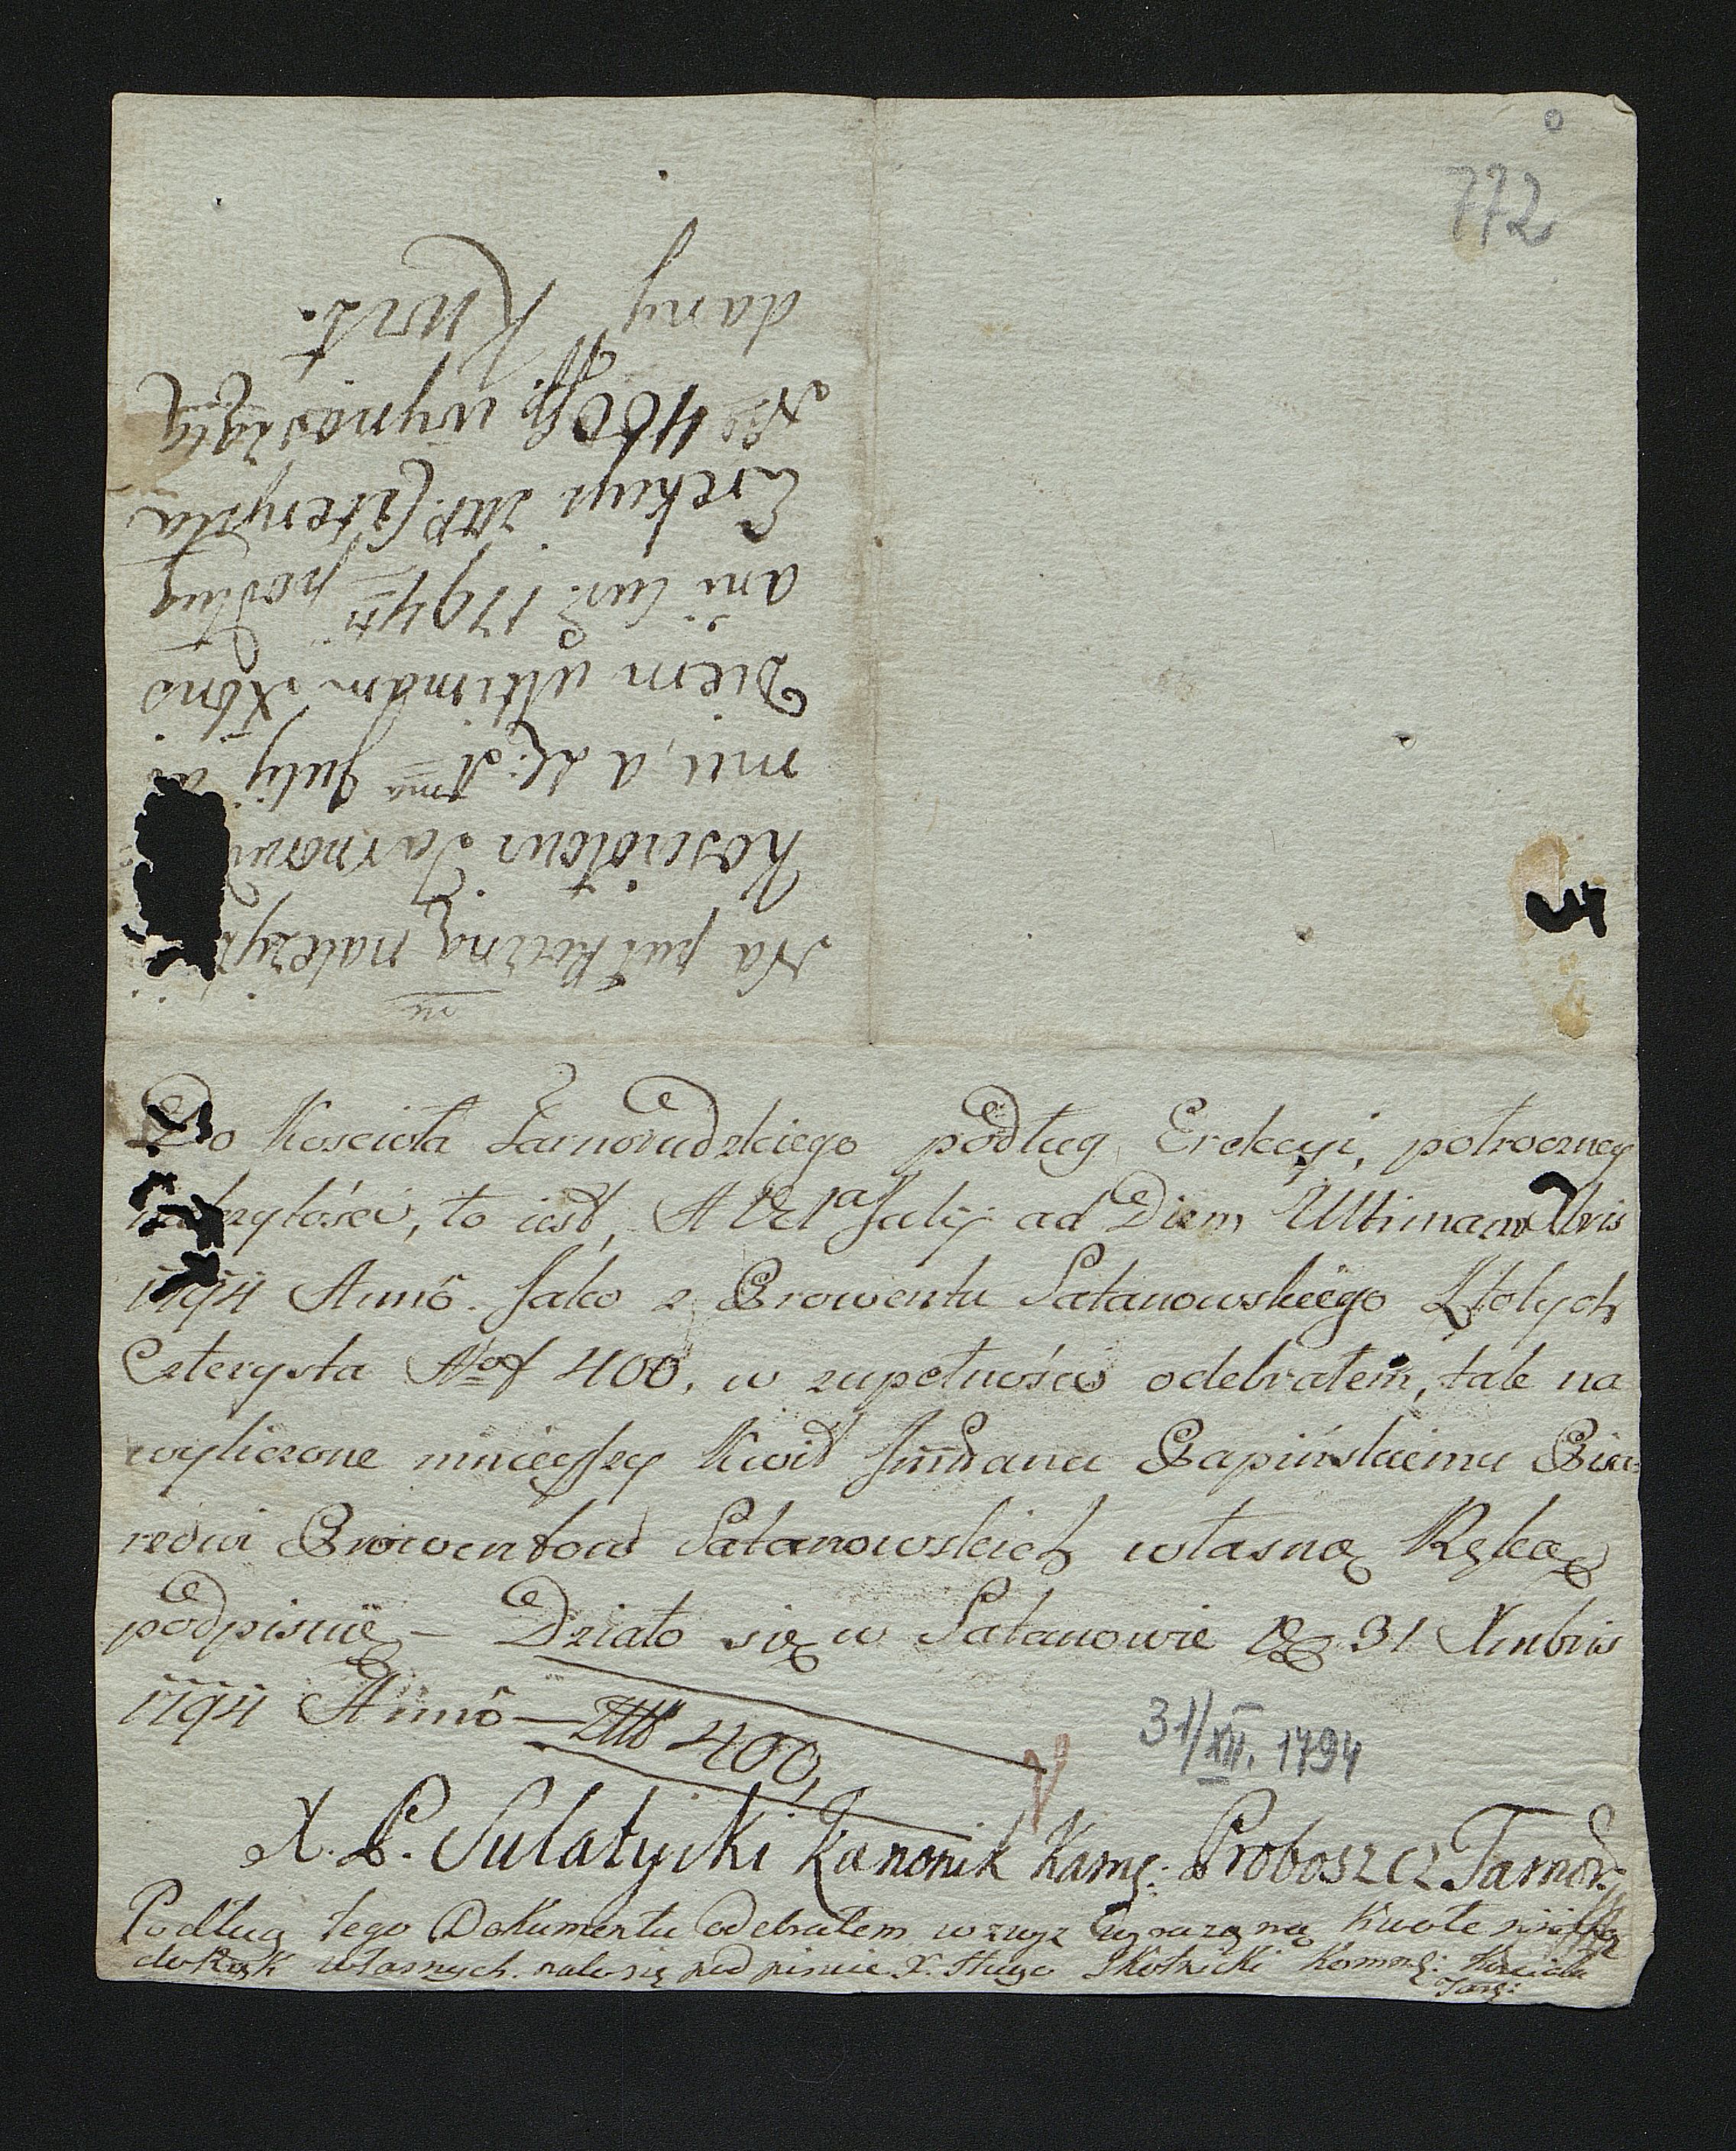 772
Na pułroczną należyt
Kosciołowi Tarnoru
mu, a d: 1ma Julij ad
Diem ultimam Xbris
ani curr: 1794ti podług
Erekcyi złp. czterysta
No 400 fp. wynoszącą
dany Kwit.
Do Koscioła Tarnorudzkiego podług Erekcyi, połroczney
należytósci, to iest, A 1a Julij ad Diem Ultimam Xbris
1794 Annô. Jako z Prowentu Satanowskiego Złotych
Czterysta No f 400, w zupełnosci odebrałem, tak na
wyliczone ninieyszy Kwit Jmć Panu Papińskiemu Pisa=
rowi Prowentow Satanowskich własną Ręką
podpisuię – Działo się w Satanowie D 31 Xmbris
1794 Annô – Złł 400,
31/XII. 1794
X. P. Sulatycki Kanonik Kamę: Proboszcz Tarnor:
Podług tego Dokumentu odebrałem w zwyz wyrazoną Kwote
do Rąk własnych. na to się pod pisuie X. Hugo Skotnicki Komm: Koscioła
Tar: